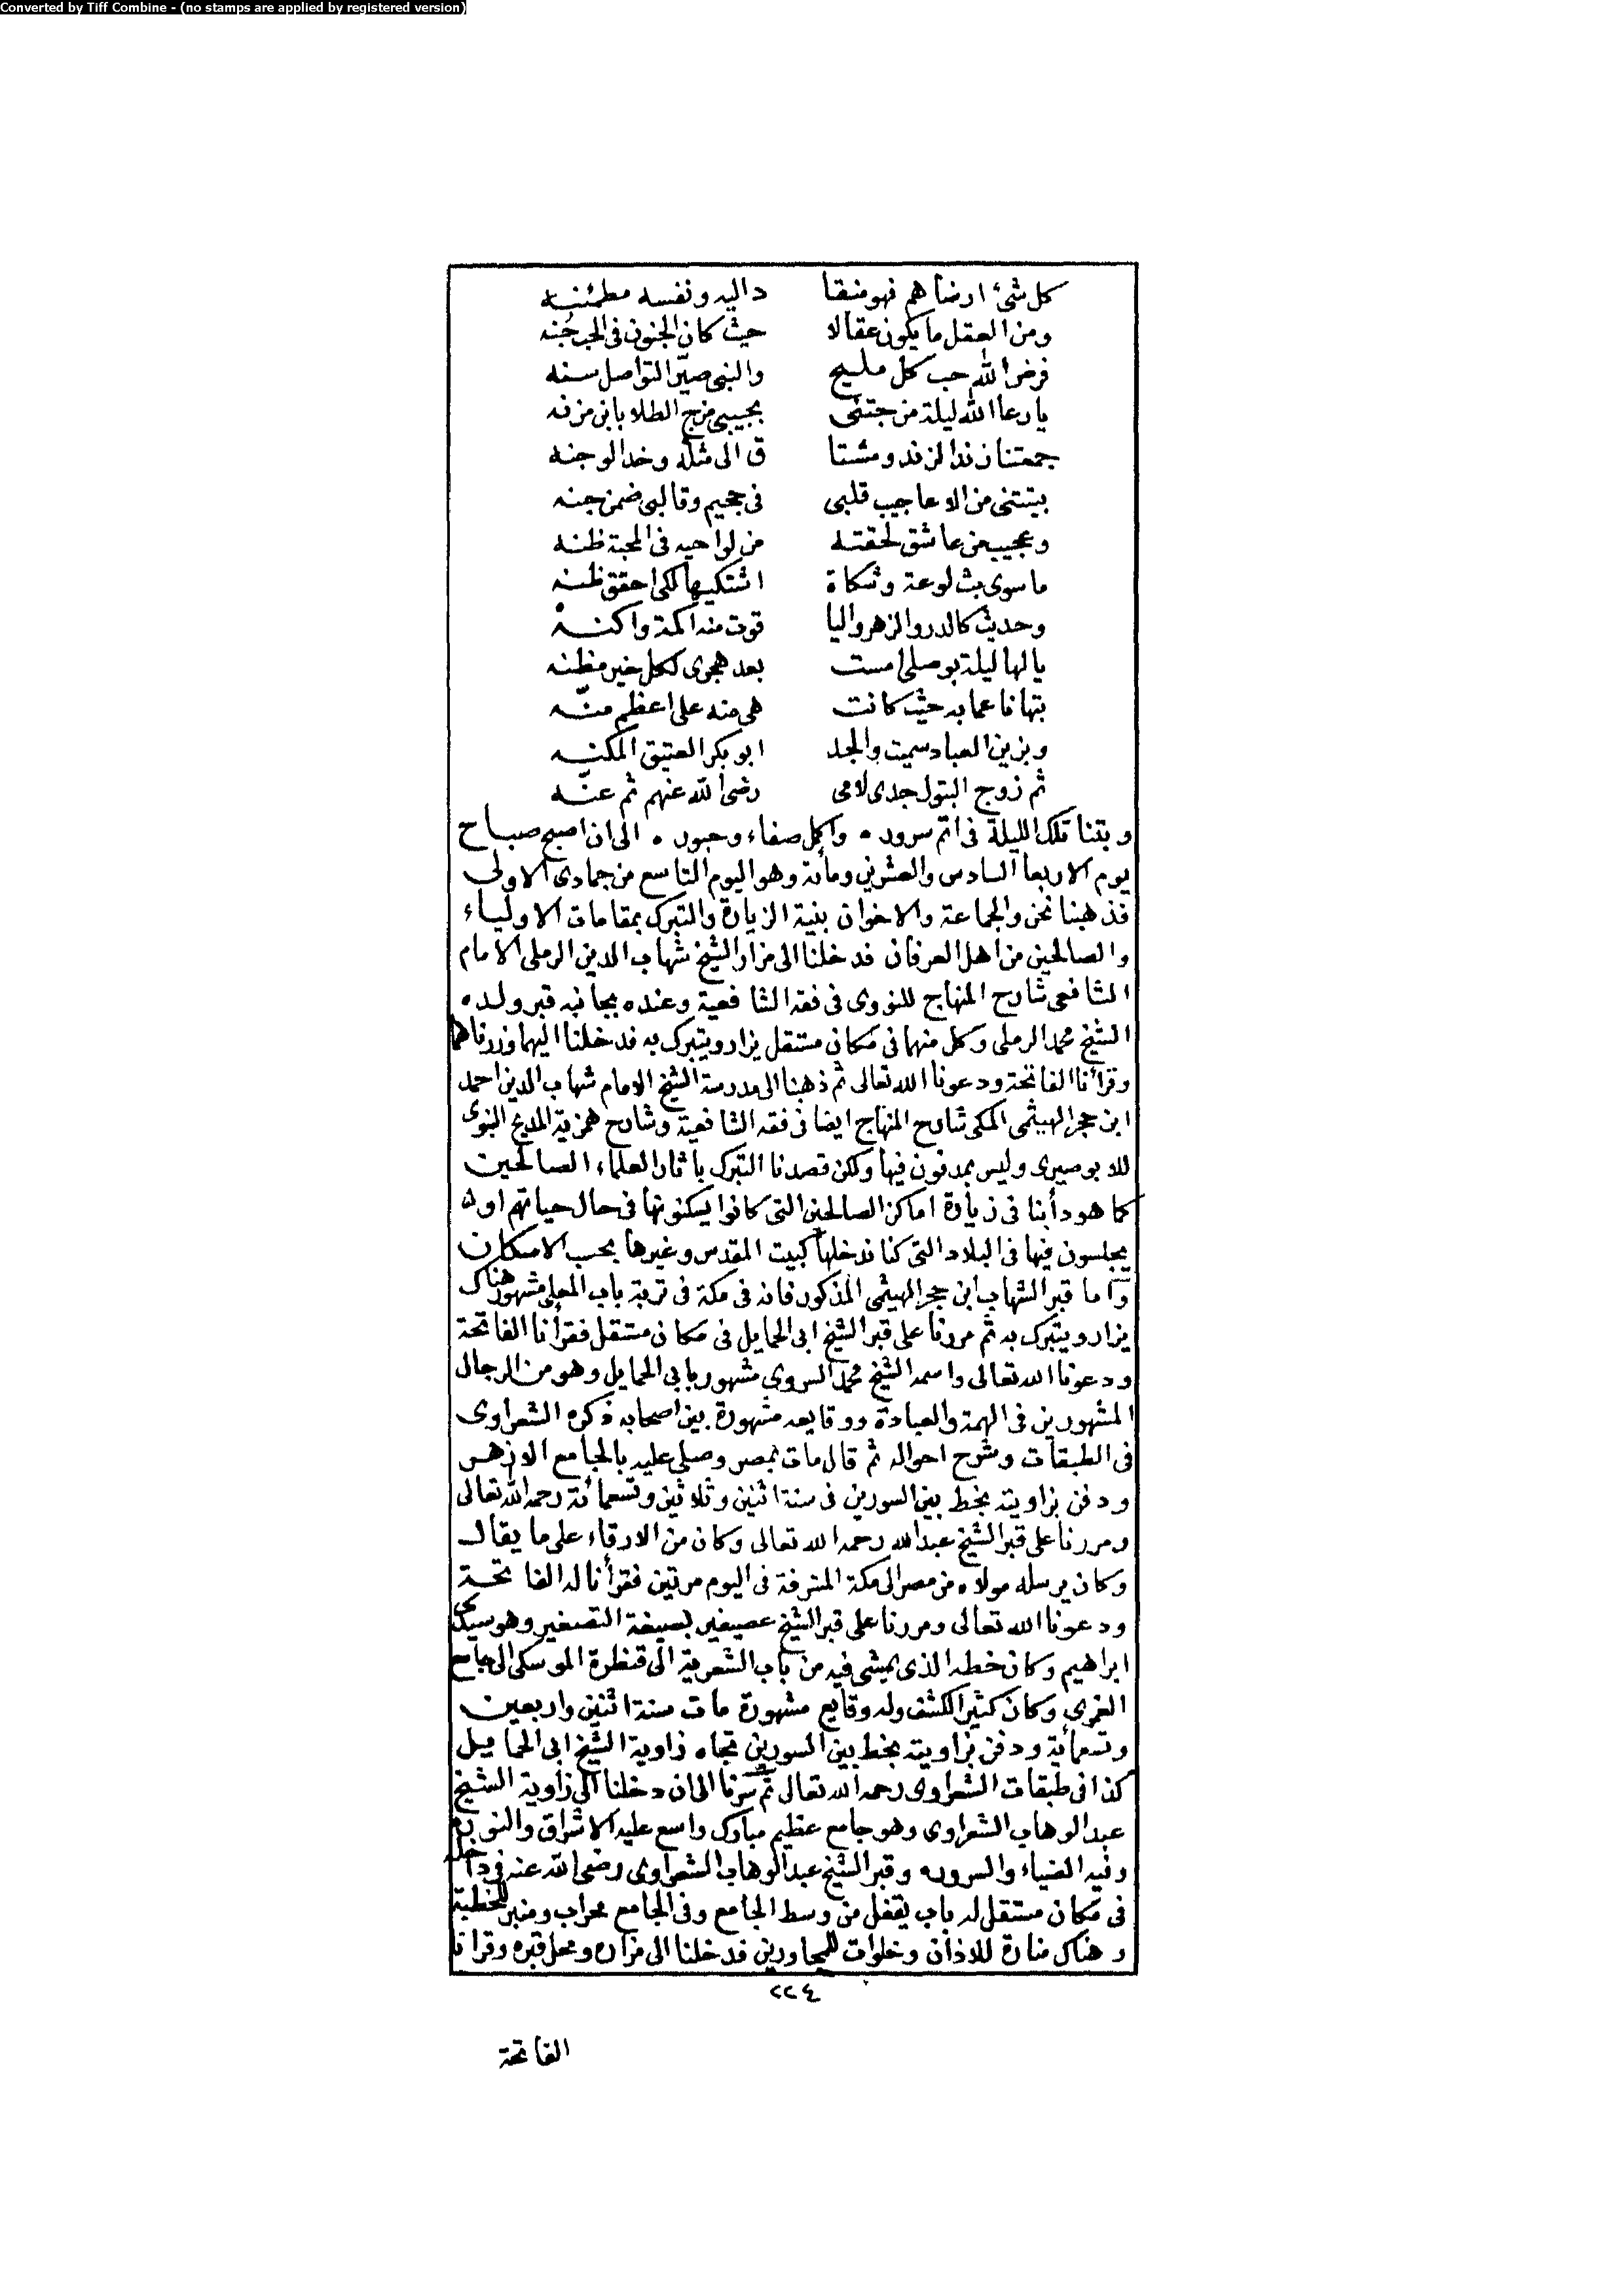 Converted by Tiff Combine - (no stamps are applied by registered version)
كل شئ ارضاهم فهو منقا د اليه ونفسه مطمئنه
ومن العقل ما يكون عقالا حيث كان الجنون فى الحب جُنه
فرض الله حب كل مليح والنبى صيّر التواصل سنه
يا رعا الله ليلة من جتنى بحبيبى مزج الطلا بابن مزنه
جمعتنا زندا لزند ومشتا ق الى مثله وخدا لوجنه
بيتتنى من الاعاجيب قلبى فى جحيم وقالبى ضمن جنه
وعجيب من عاشق لحقته من لواحيه فى المحبة ظنه
ما سوى بث لوعة وشكاة اشتكيها لكى احقق ظنه
وحديث كالدر والزهر واليا قوت منه اكمة واكنه
يا لها ليلة بوصلى امست بعد هجرى لكل خير مظنه
بتها ناعما به حيث كانت هى منه على اعظم منّه
وبزين العباد سميت والجد ابو بكر العتيق المكنه
ثم زوج البتول جدى لامى رضى الله عنهم ثم عنّه
وبتنا تلك الليلة فى اتم سرور • واكمل صفاء وحبور • الى ان اصبح صباح
يوم الاربعا السادس والعشرين ومأئة وهو اليوم التاسع من جمادى الاولى
فذهبنا نحن والجماعة والاخوان بنية الزيارة والتبرك بمقامات الاولياء
والصالحين من اهل العرفان فدخلنا الى مزار الشيخ شهاب الدين الرملى الامام
الشافعى شارح المنهاج للنووى فى فقه الشافعية وعنده بجانبه قبر ولده
الشيخ محمد الرملى وكل منهما فى مكان مستقل يزار ويتبرك به فدخلنا اليهما وزرناهما
وقرأنا الفاتحة ودعونا الله تعالى ثم ذهبنا الى مدرسة الشيخ الامام شهاب الدين احمد
ابن حجر الهيثمى المكى شارح المنهاج ايضا فى فقه الشافعية وشارح همزية المديح النبوى
للابوصيرى وليس بمدفون فيها ولكن قصدنا التبرك باثار العلماء الصالحين
كما هو دأبنا فى زيارة اماكن الصالحين التى كانوا يسكنونها فى حال حياتهم او
يجلسون فيها فى البلاد التى كنا ندخلها كبيت المقدس وغيرها بحسب الامكان
واما قبر الشهاب ابن حجر الهيثمى المذكور فانه فى مكة فى تربة باب المعلى مشهور هناك
يزار ويتبرك به ثم مررنا على قبر الشيخ ابى الحمايل فى مكان مستقل فقرأنا الفاتحة
ودعونا الله تعالى واسمه الشيخ محمد السروى مشهور بابى الحمايل وهو من الرجال
المشهورين فى الهمة والعبادة ووقايعه مشهورة بين اصحابه ذكره الشعراوى
فى الطبقات وشرح احواله ثم قال مات بمصر وصلى عليه بالجامع الازهر
ودفن بزاويته بخط بين السورين فى سنة اثنين وثلاثين وتسعمائة رحمه الله تعالى
ومررنا على قبر الشيخ عبد الله رحمه الله تعالى وكان من الارقاء على ما يقال
وكان يرسله مولاه من مصر الى مكة المشرفة فى اليوم مرتين فقرأنا له الفاتحة
ودعونا الله تعالى ومررنا على قبر الشيخ عصيفير بصيغة التصغير وهو سيدى
ابراهيم وكان خطه الذى يمشى فيه من باب الشعرية الى قنطرة الموسكى الى جامع
الغمرى وكان كثير الكشف وله وقايع مشهورة مات سنة اثنين واربعين
وتسعمائة ودفن بزاويته بخط بين السورين تجاه زاوية الشيخ ابى الحمايل
كذا فى طبقات الشعراوى رحمه الله تعالى ثم سرنا الى ان دخلنا الى زاوية الشيخ
عبد الوهاب الشعراوى وهو جامع عظيم مبارك واسع عليه الاشراق والنور
وفيه الضياء والسرور وقبر الشيخ عبد الوهاب الشعراوى رضى الله عنه فى داخله
فى مكان مستقل له باب يقفل من وسط الجامع وفى الجامع محراب ومنبر للخطبة
وهناك منارة للاذان وخلوات للمجاورين فدخلنا الى مزاره ومحل قبره وقرانا
٢٢٤
الفاتحة